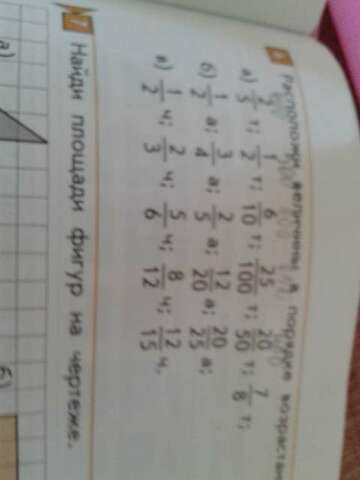 Расположи величины в порядке возрастания
а) 2/5 т; 1/2 т; 6/10 т; 25/100 т; 20/50 т; 7/8 т;
б) 1/2 а; 3/4 а; 2/5 а; 12/20 а; 20/25 а;
в) 1/2 ч; 2/3 ч; 5/6 ч; 8/12 ч; 12/15 ч.
7 Найди площади фигур на чертеже.
а)
б)